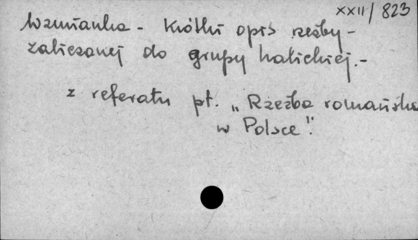 XXII/823
Wzmianka - Krótki opis rzeźby -
zaliczanej do grupy halickiej.-
z referatu pt. „Rzeźba romańska
w Polsce".